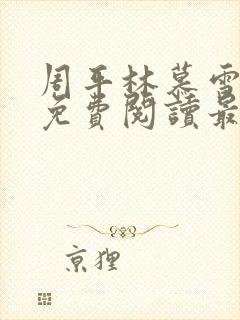 周平林慕雪
免費閱讀最
京狸